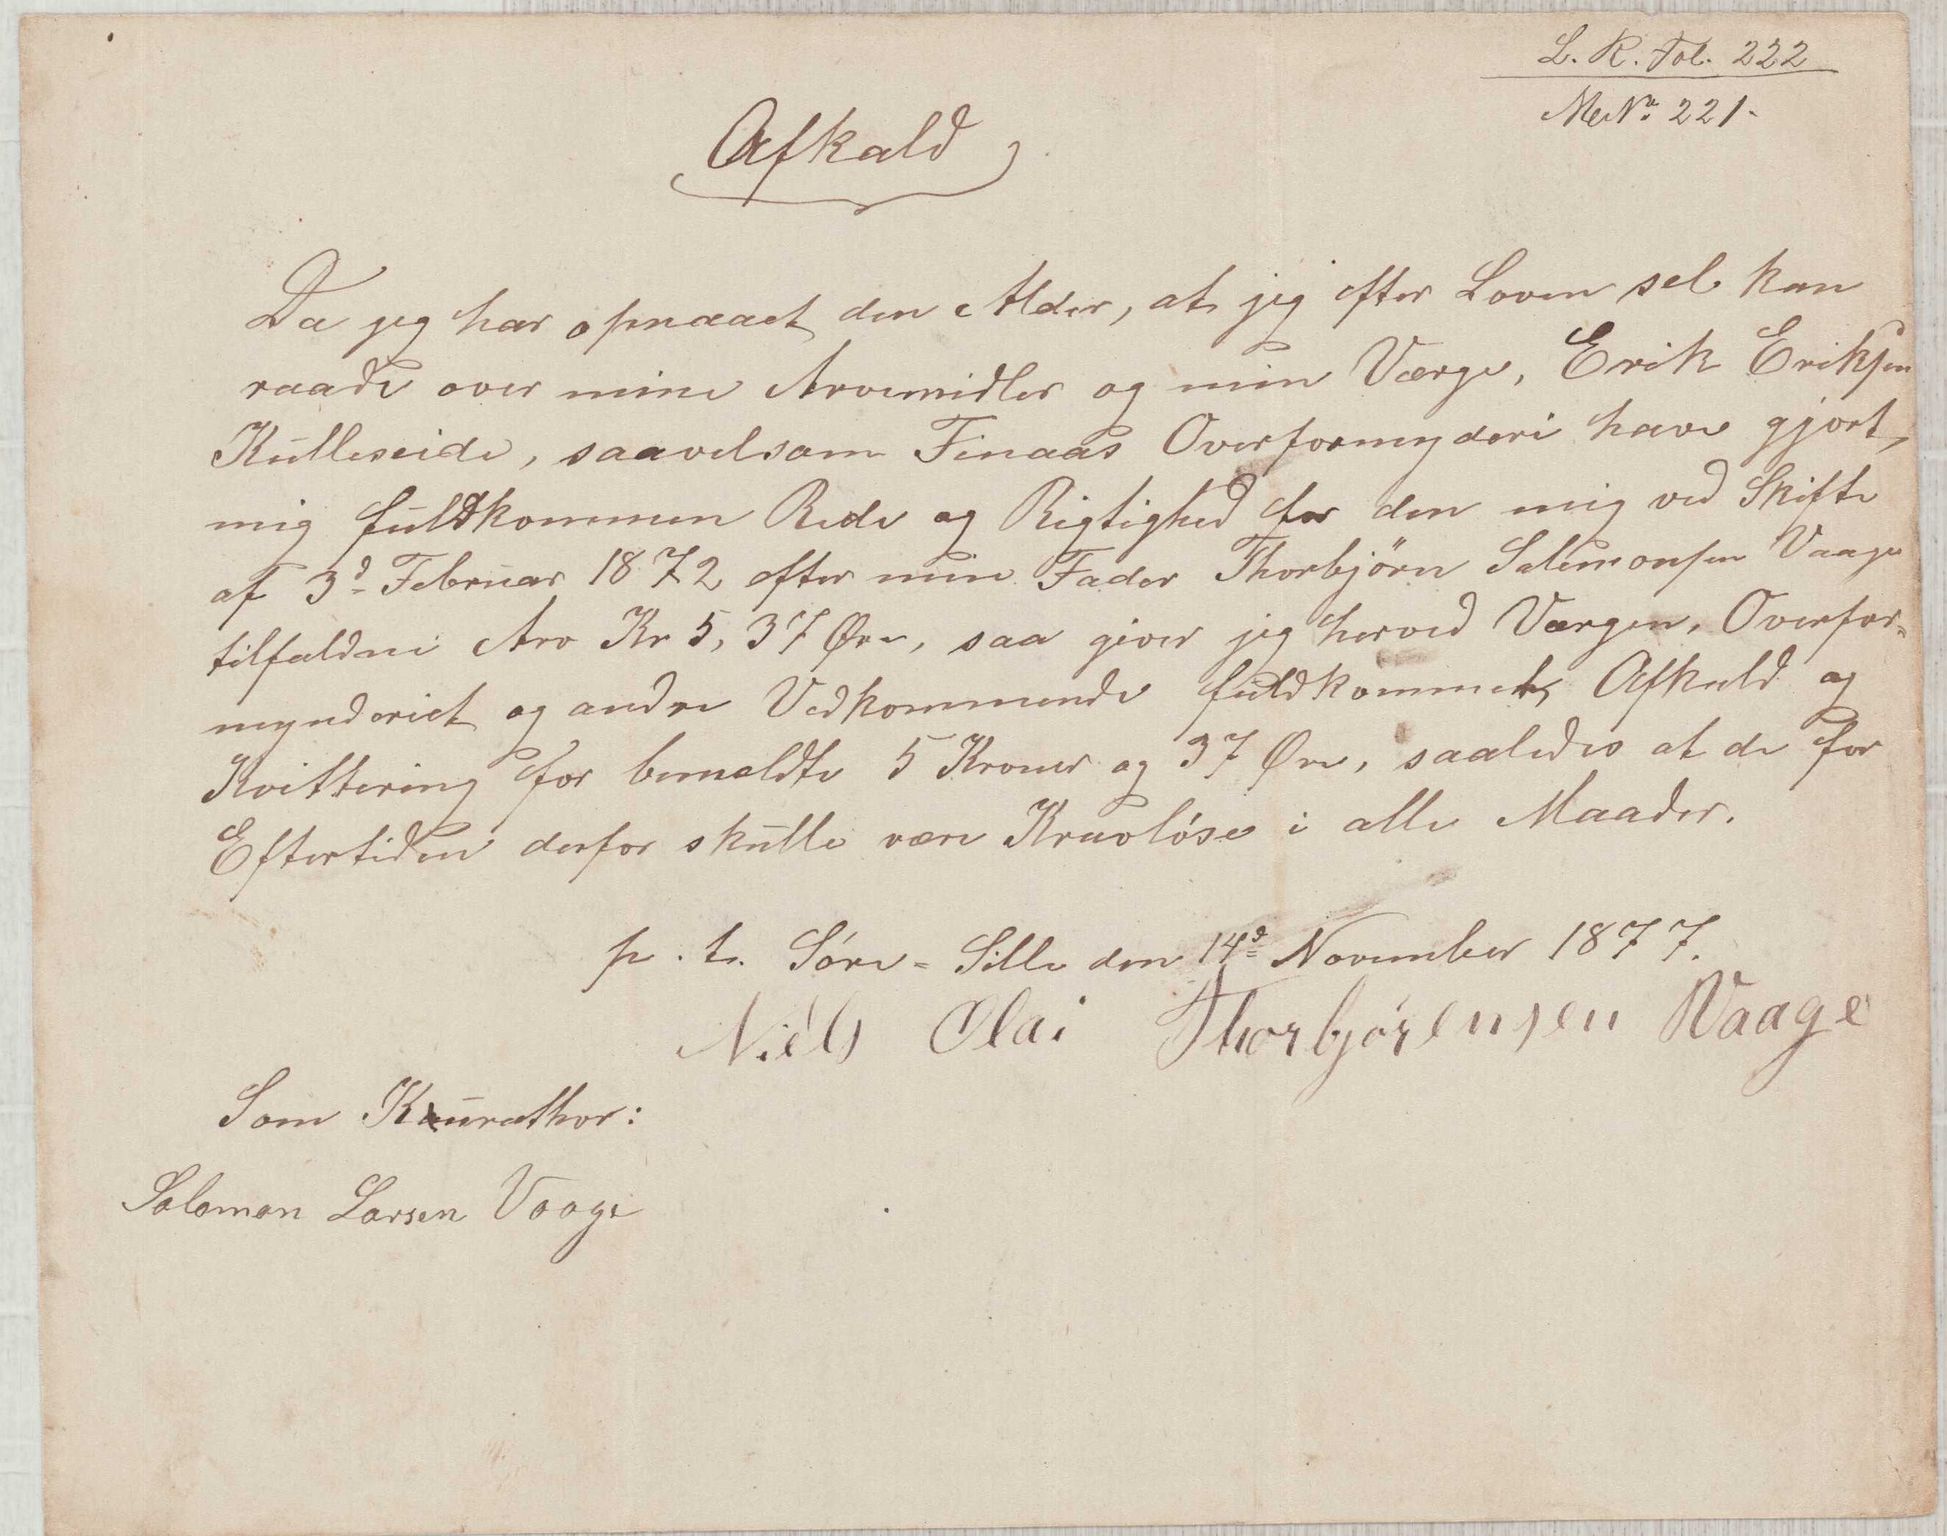 L. R. Fol. 222
M No 221.
Afkald
Da jeg har opnaaet den Alder, at jeg efter Loven sel kan
raade over mine Arvemidler og min Værge, Erik Eriksen
Kulleseide, saavelsom Finaas Overformynderi have gjort
mig fuldkommen Rede og Rigtighed for den mig ved Skifte
af 3d Februar 1872 efter min Fader Thorbjörn Salemonsen Vaage
tilfaldne Arv Kr 5, 37 Øre, saa giver jeg herved Værgen, Overfor-
mynderiet og andre Vedkommende fuldkommet, Afkald og
Kvittering for bemeldte 5 Kroner og 37 Øre, saaledes at de for
Eftertiden derfor skulle være Kravlöse i alle Maader.
p. t. Söre-Sille den 14d November 1877.
Niels Olai Thorbjörensen Vaage
Som Kurathor:
Salomon Larsen Vaage